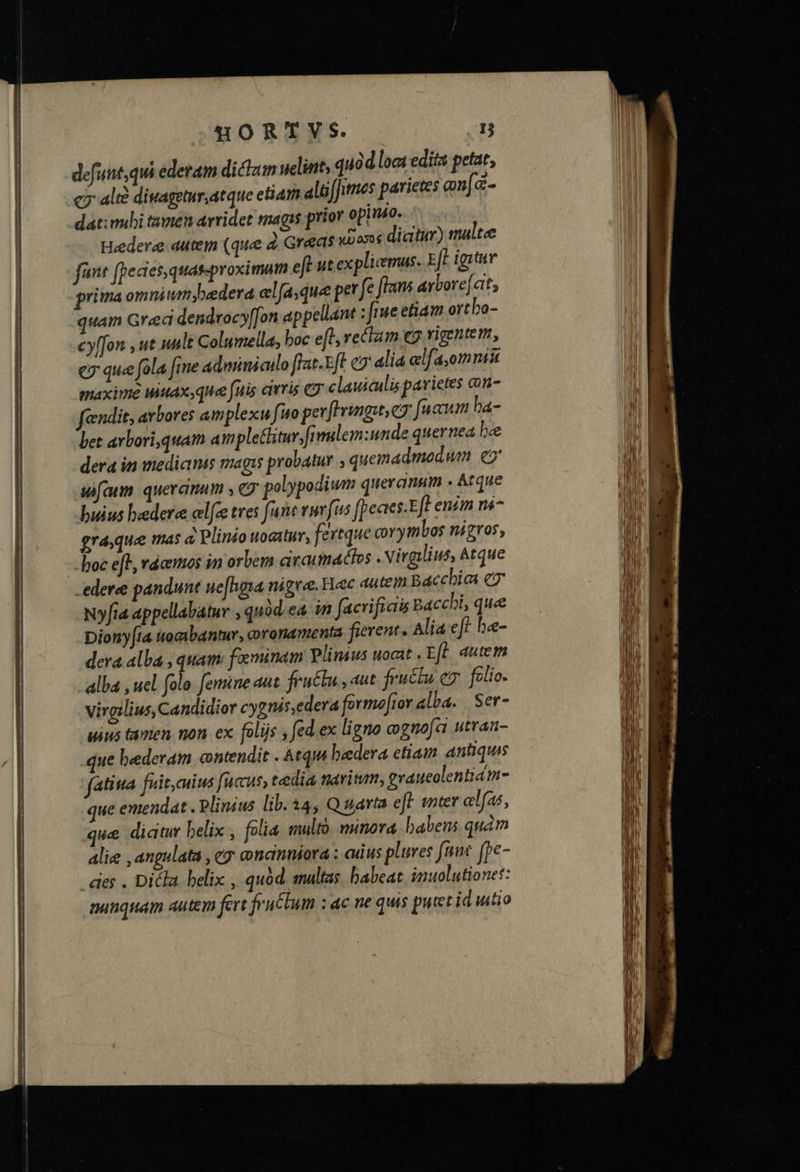 HORTVS. 13
desunt,qui ederam dictam uelint, quòd loca edita petat,
& altè diuagetur,atque etiam altissimos parietes conscē-
dat: mihi tamen arridet magis prior opinio.
Hæderæ autem (quæ à Græcis κισσος dicitur) multæ
sunt species,quas proximum est ut explicemus. Est igitur
prima omnium,hædera celsa,quæ per se stans arborescit,
quam Græci dendrocysson appellant : siue etiam ortho-
cysson , ut uult Columella, hoc est, rectam & rigentem,
& quæ sola sine adminiculo stat. Est & alia celsa,omniū
maximè uiuax,quæ suis cirris & clauiculis parietes con-
scendit, arbores amplexu suo perstringit,& succum ha-
bet arbori,quam amplectitur,similem: unde quernea hæ
dera in medicinis magis probatur , quemadmodum &
uiscum quercinum , & polypodium quercinum . Atque
huius hæderæ celsæ tres sunt rursus species. Est enim ni-
gra,quæ mas à Plinio uocatur, fertque corymbos nigros,
hoc est, racemos in orbem circumactos . Virgilius, Atque
ederæ pandunt uestigia nigræ. Hæc autem Bacchica &
Nysia appellabatur , quòd ea in sacrificijs Bacchi, quæ
Dionysia uocabantur, coronamenta fierent . Alia est hæ-
dera alba , quam fœminam Plinius uocat . Est autem
alba , uel solo semine aut fructu , aut fructu & folio.
Virgilius,Candidior cygnis,edera formosior alba. Ser-
uius tamen non ex folijs , sed ex ligno cognosci utran-
que hæderam contendit . Atqui hædera etiam antiquis
satiua fuit,cuius succus, tædia narium, graueolentiám-
que emendat . Plinius lib. 24, Quarta est inter celsas,
quæ dicitur helix , folia multò minora habens quàm
aliæ , angulata , & concinniora : cuius plures sunt spe-
cies . Dicta helix , quòd multas habeat inuolutiones:
nunquam autem fert fructum : ac ne quis putet id uitio